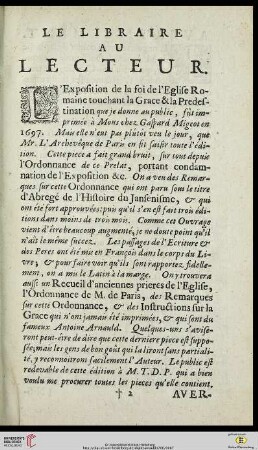 LE LIBRAIRE
AU
LECTEUR.
L'Exposition de la foi de l'Eglise Ro-
maine touchant la Grace & la Predes-
tination que je donne au public, fût im-
primée à Mons chez Gaspard Migeot en
1697. Mais elle n'eut pas plutôt veu le jour, que
Mr. L'Archevêque de Paris en fit saisir toute l'édi-
tion. Cette piece a fait grand bruit, sur tout depuis
l'Ordonnance de ce Prelat, portant condam-
nation de l'Exposition &c. On a veu des Remar-
ques sur cette Ordonnance qui ont paru sous le titre
d'Abregé de l'Histoire du Jansenisme, & qui
ont été fort approuvées; puis qu'il s'en est fait trois édi-
tions dans moins de trois mois. Comme cet Ouvrage
vient d'être beaucoup augmenté, je ne doute point qu'il
n'ait le même succez. Les passages de l'Ecriture &
des Peres ont été mis en François dans le corps du Li-
vre; & pour faire voir qu'ils sont rapportez fidelle-
ment, on a mis le Latin à la marge. On y trouvera
aussi un Recueil d'anciennes prieres de l'Eglise,
l'Ordonnance de M. de Paris, des Remarques
sur cette Ordonnance, & des Instructions sur la
Grace qui n'ont jamais été imprimées, & qui sont du
fameux Antoine Arnauld. Quelques-uns s'avise-
ront peut-être de dire que cette derniere piece est suppo-
sée; mais les gens de bon goût qui la liront sans partiali-
té, y reconnoitront facilement l'Auteur. Le public est
redevable de cette édition à M. T. D. P. qui a bien
voulu me procurer toutes les pieces qu'elle contient.
† 2 AVER-